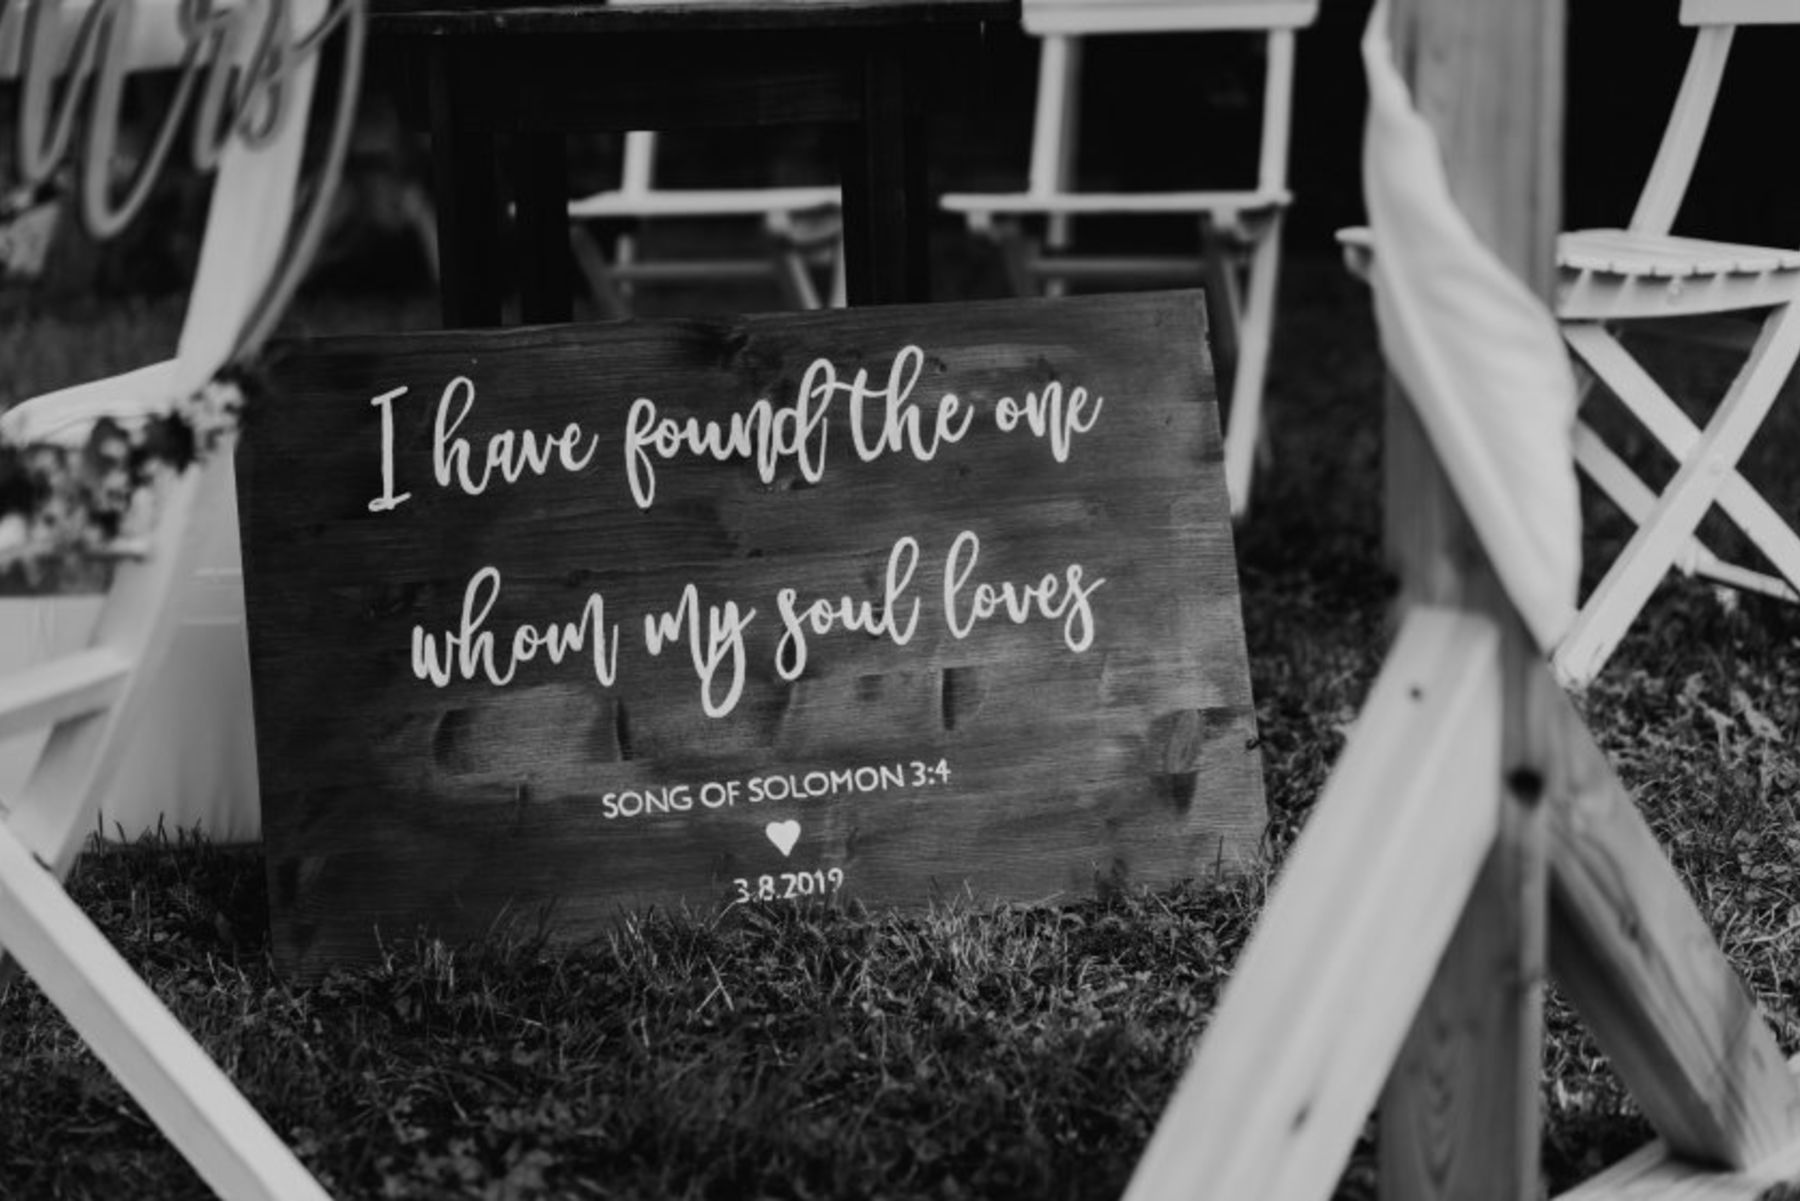 Mrs
I have found the one
whom my soul loves
SONG OF SOLOMON 3:4
3.8.2019